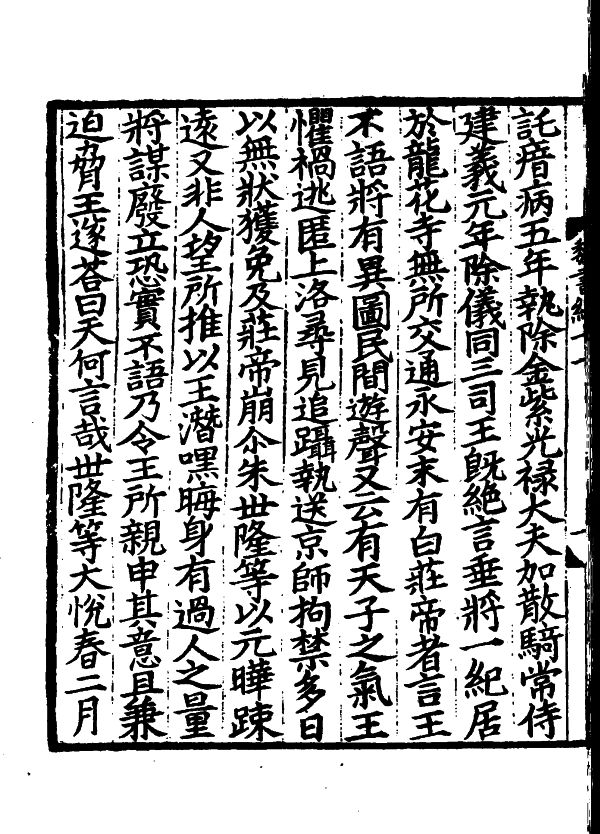 託瘖病五年執除金紫光禄大夫加散騎常侍
建義元年除儀同三司王既絶言垂將一紀居
於龍花寺無所交通永安末有白莊帝者言王
不語將有異圖民間遊聲又云有天子之氣王
懼禍逃匿上洛尋見追躡執送京師拘禁多日
以無狀獲免及莊帝崩尒朱世隆等以元曄踈
逺又非人望所推以王潛嘿晦身有過人之量
將謀廢立恐實不語乃令王所親申其意且兼
迫脅王遂荅曰天何言哉世隆等大悅春二月